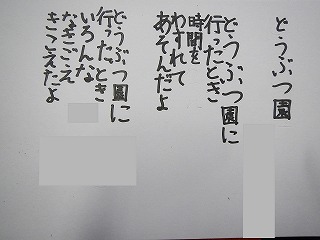 どうぶつ園
どうぶつ園に
行ったとき
時間を
わすれて
あそんだよ
どうぶつ園に
行ったとき
いろんな
なきごえ
きこえたよ